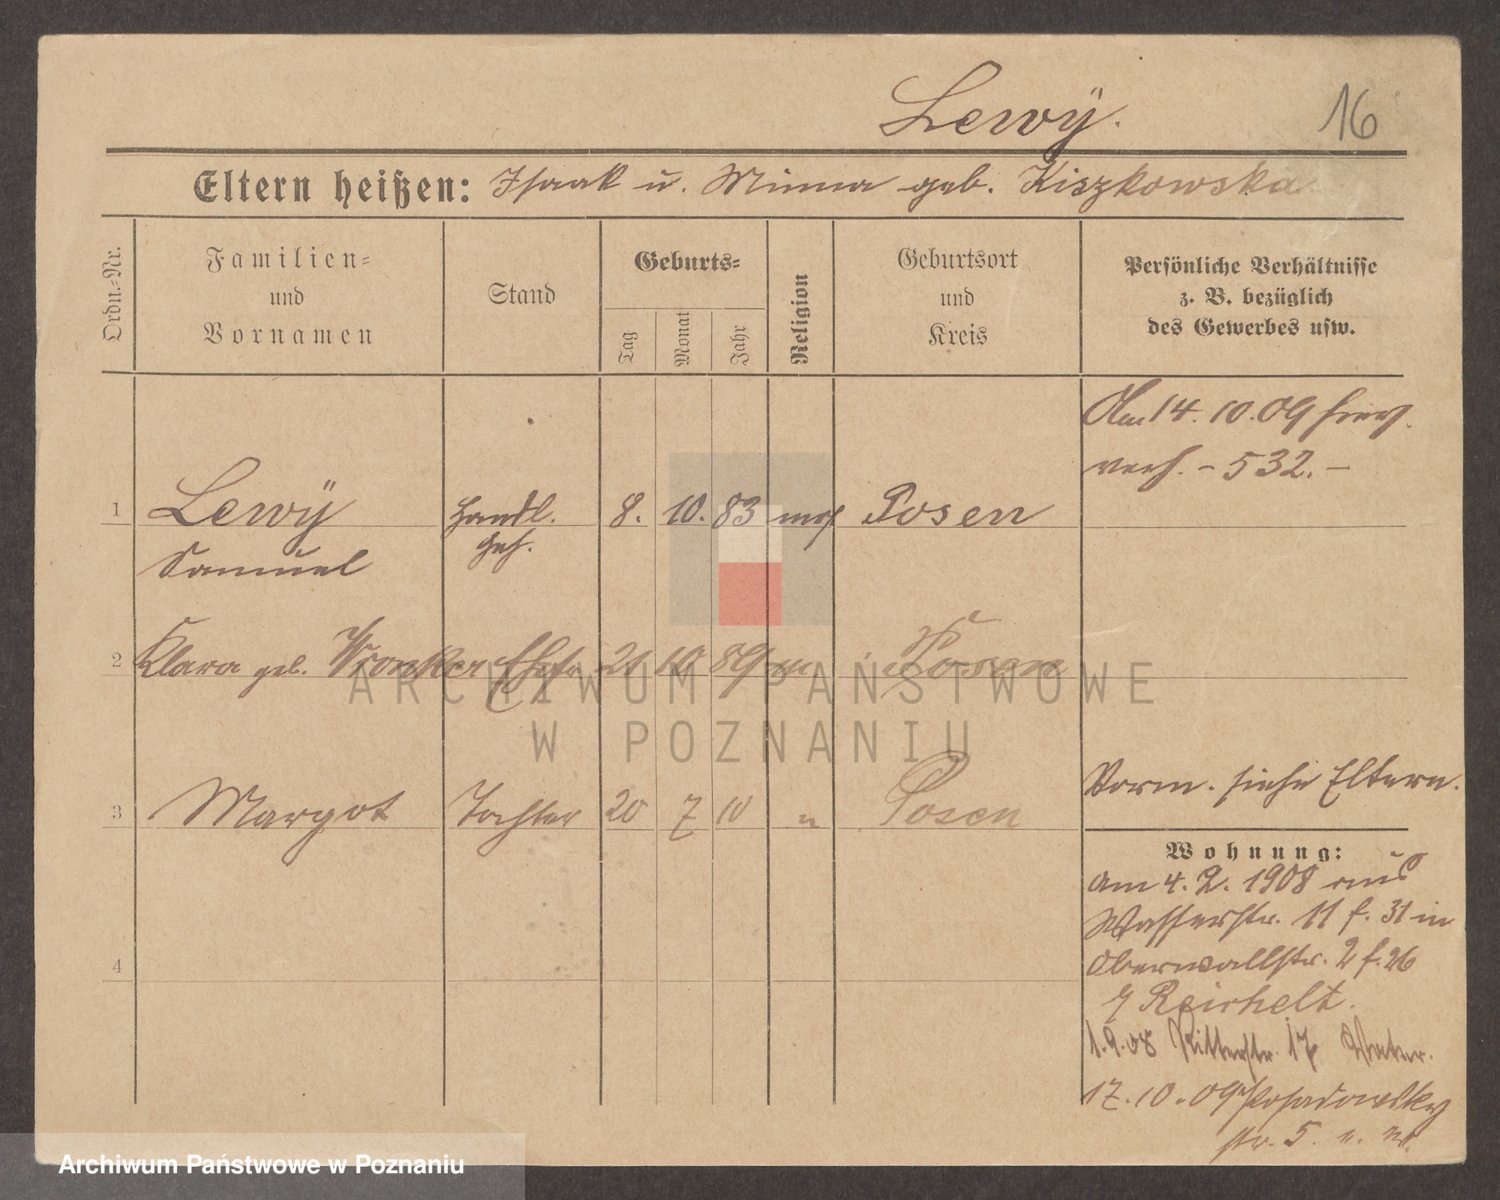 Lewÿ.
16
Eltern heißen: Isaak u. Minna geb. Kiszkowska
Ordn.-Nr.
Familien-
und
Vornamen
Stand
Geburts-
Tag
Monat
Jahr
Religion
Geburtsort
und
Kreis
Persönliche Verhältnisse
z. B. bezüglich
des Gewerbes usw.
Am 14. 10. 09 hier
verh. - 532. -
1 Lewÿ Handl. 8. 10. 83 mos Posen
Samuel Geh.
2 Klara geb. Wronker Ehefr 21 10 89 m Posen
3 Margot Tochter 20 7 10 " Posen
Vorm. siehe Eltern.
4
Wohnung:
am 4. 2. 1908 aus
Wasserstr. 11 f. 31 in
Oberwallstr. 2 f. 26
Reichelt.
1.9.08 Ritterstr. 17
17.10.09 Posadowsky
str. 5.
ARCHIWUM PAŃSTWOWE
W POZNANIU
Archiwum Państwowe w Poznaniu